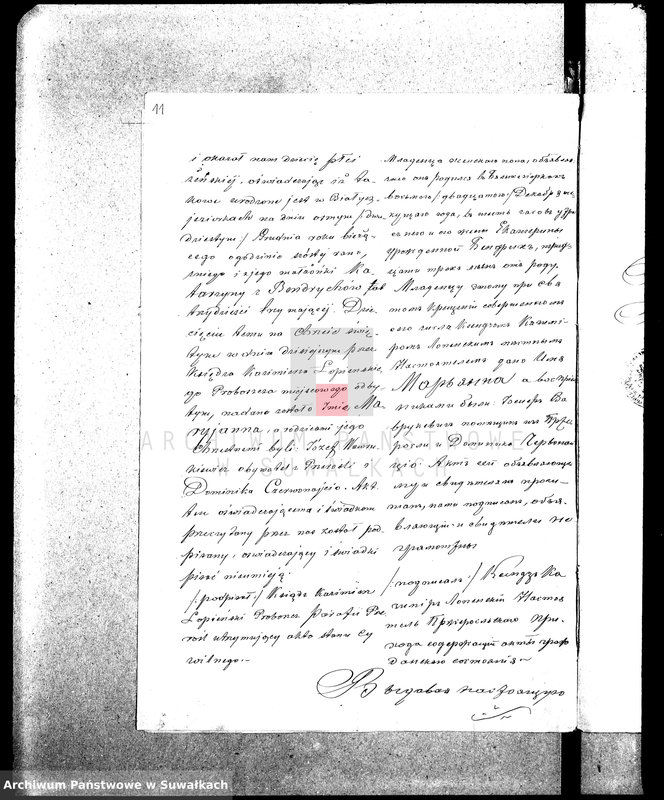 11
i okazał nam dziecię płci
żeńskiej, oświadczając iż ta-
kowe urodzone jest w Białych
jeziorkach na dniu osmym /:dwu-
dziestym:/ Grudnia roku bieżą-
cego o godzinie szóstej rano,
z niego i z jego małżonki Ka-
tarzyny z Bendrychów lat
trzydzieści trzy mającej. Dzie-
cięciu temu na Chrzcie świę-
tym w dniu dzisiejszym przez
Księdza Kazimierza Łopieńskie-
go Proboszcza miejscowego odby-
tym, nadano zostało Imię Ma-
ryanna, a rodzicami jego
Chrzestnymi byli: Józef Wawru-
kiewicz obywatel z Przerośli i
Dominika Czerwonajcio. Akt
ten oświadczającemu i świadkom
przeczytany przez nas został pod-
pisany, oświadczający i świadki
pisać nieumieją.
/:podpisał:/ Ksiądz Kazimierz
Łopieński Proboszcz Parafii Prze-
rośl utrzymujący akta stanu Cy-
wilnego.-
Младенца женскаго пола, объявляя
что онъ родился въ Бялыезіоркахъ
восьмаго /двадцатаго/ Декабря те-
кущаго года, въ шесть часовъ утра
съ него и его жены Екатерины
урожденной Бендрихъ, трид-
цати трехъ лѣтъ отъ роду.
Младенцу этому при Свя
томъ Крещеніи совершенномъ
сего числа Ксендзомъ Казимі-
ромъ Лопенскимъ мѣстнымъ
Настоятелемъ дано Имя
Марьянна а воспріем
никами были: Іосифъ Ва
врукевичъ помѣщикъ изъ Прже-
росли и Доминика Червонай-
ціо. Актъ сей объявляюще-
му и свидѣтелямъ прочи-
танъ, нами подписанъ, объя-
вляющій и свидѣтели не
грамотны
/:подписалъ:/ Ксендзъ Ка
зиміръ Лопенскій Настоя
тель Пржерослскаго При-
хода содержащій акты граж
данскаго состоянія
настоящую
Archiwum Państwowe w Suwałkach